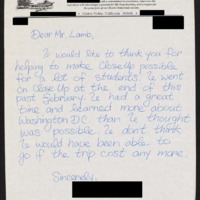 Dear Mr. Lamb,
I would like to thank you for
helping to make CloseUp possible
for a lot of students. I went
on CloseUp at the end of this
past February. I had a great
time and learned more about
Washington D.C. than I thought
was possible. I don't think
I would have been able to
go if the trip cost any more.
Sincerely,